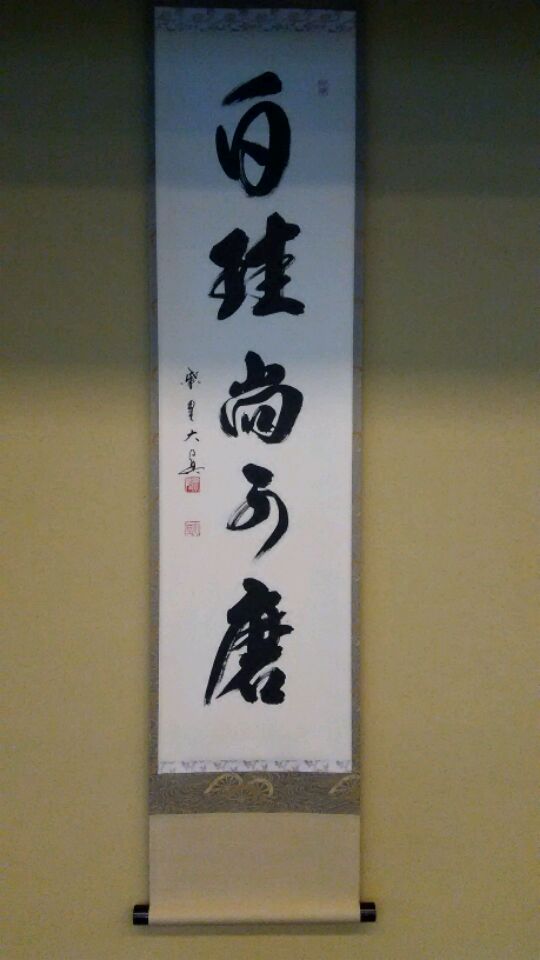 白珪尚可磨